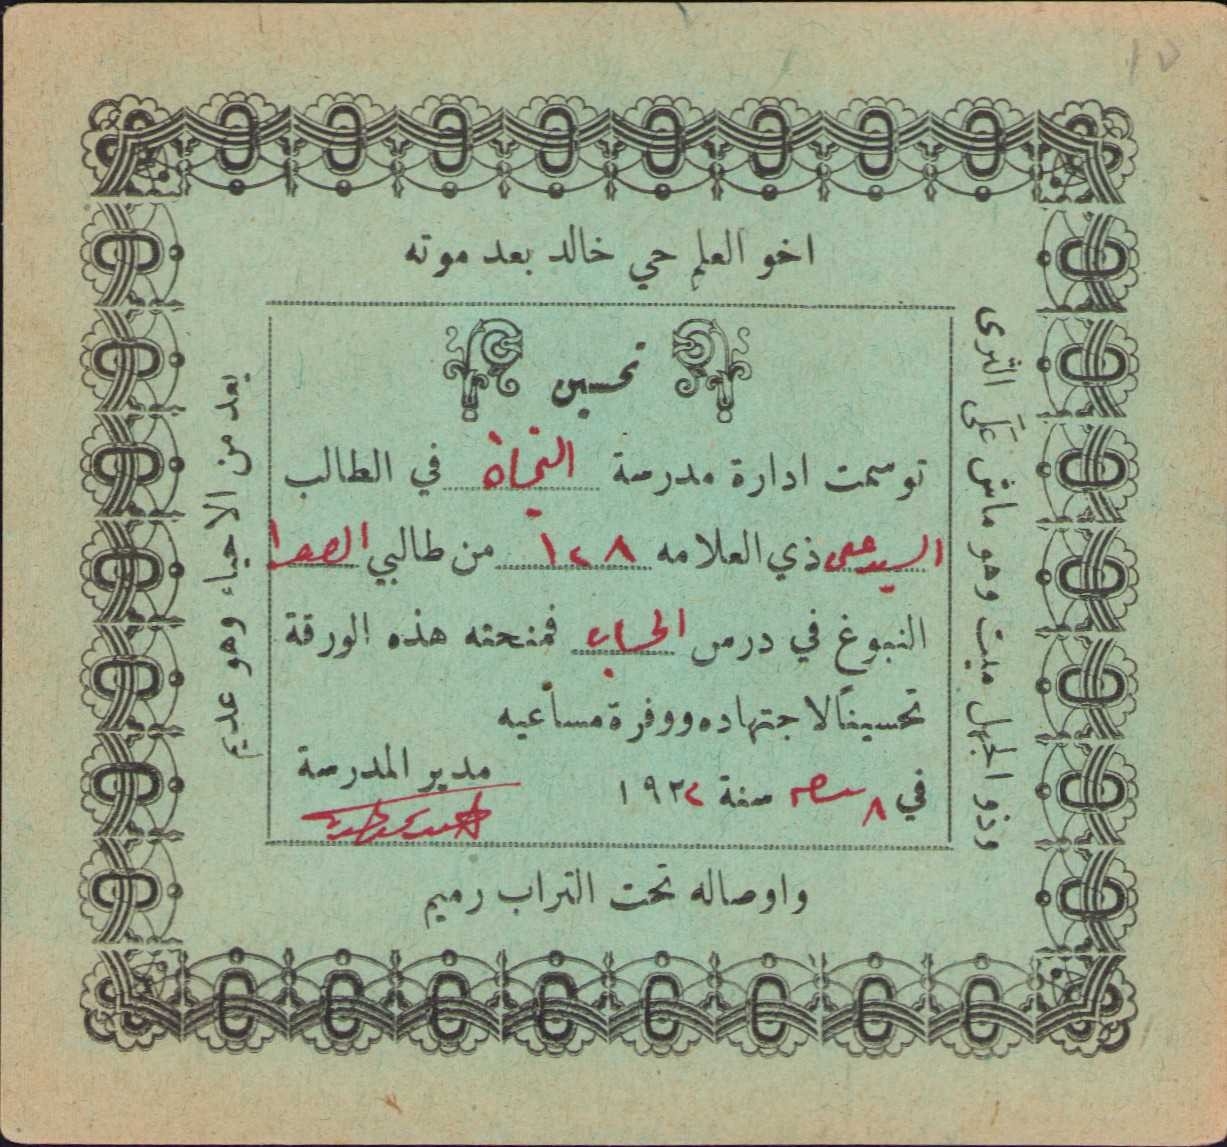 اخو العلم حي خالد بعد موته
واوصاله تحت التراب رميم
وذو الجهل ميت وهو ماش على الثرى
يعد من الاحياء وهو عديم
تحسين
توسمت ادارة مدرسة النجاة في الطالب
السيد علي ذي العلامه ١٢٨ من طالبي الصف ١
النبوغ في درس الحساب فمنحته هذه الورقة
تحسيناً لاجتهاده ووفرة مساعيه
في ٨ سنة ١٩٣٢
مدير المدرسة